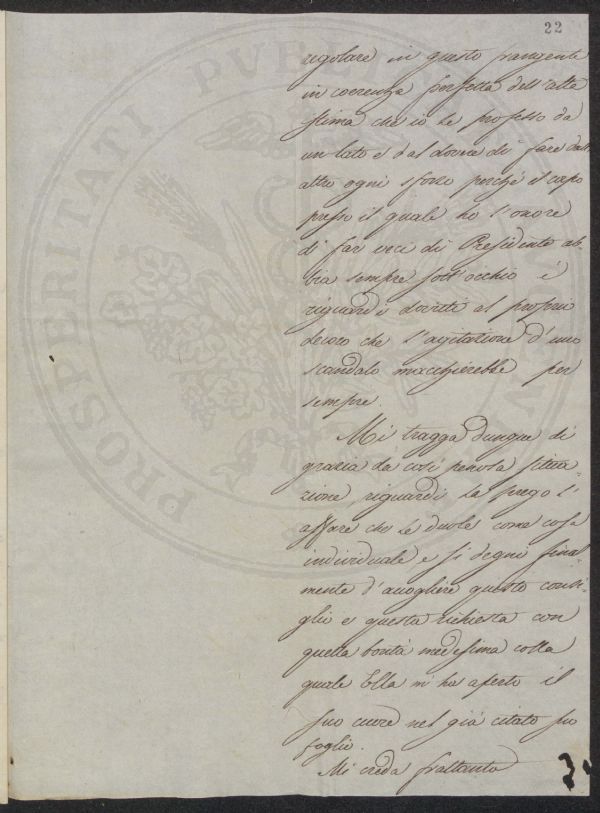 22
regolare in questo frangente
in coerenza perfetta dell'alta
stima che io Le professo da
un lato e dal dovere di fare dall'
altro ogni sforzo perché il corpo
presso il quale ho l'onore
di far veci di Presidente ab-
bia sempre sott'occhio i
riguardi dovuti al proprio
decoro che l'agitazione d'uno
scandalo macchierebbe per
sempre.
Mi tragga dunque di
grazia da così penosa situa-
zione, riguardi La prego l'
affare che Le duole come cosa
individuale e si degni final-
mente d'accogliere questo consi-
glio e questa richiesta con
quella bontà medesima colla
quale Ella mi ha aperto il
suo cuore nel già citato suo
foglio.
Mi creda frattanto
PROSPERITATI PUBLICAE